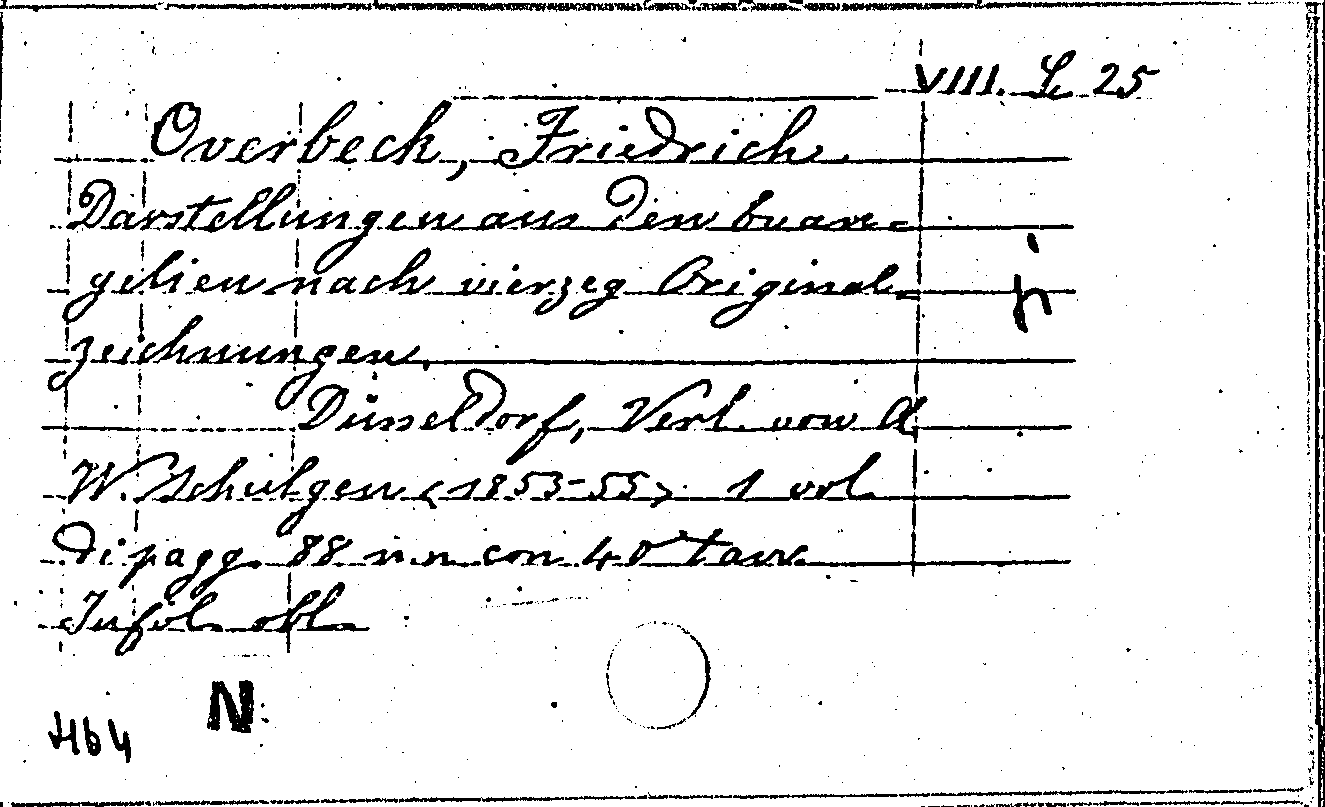 VIII. L. 25
Overbeck, Friedrich.
Darstellungen aus den Evan=
gelien nach vierzeg Original=
zeichnungen.
Düsseldorf, Verl. von A.
W. Schulgen <1853-55> 1 vol.
di pagg. 88 n.n con 40 tavv.
In fol. obl.
N